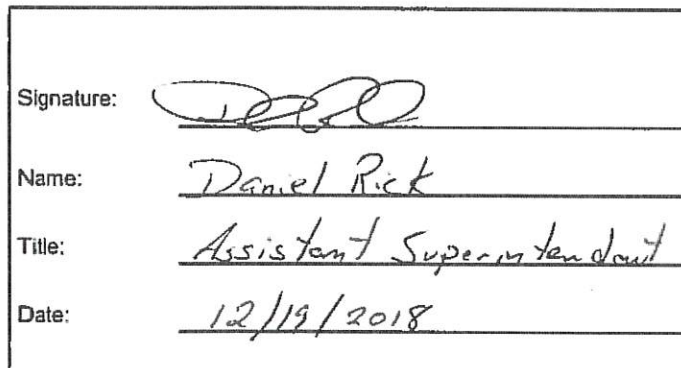 Signature:
Name: Daniel Rick
Title: Assistant Superintendant
Date: 12/19/2018